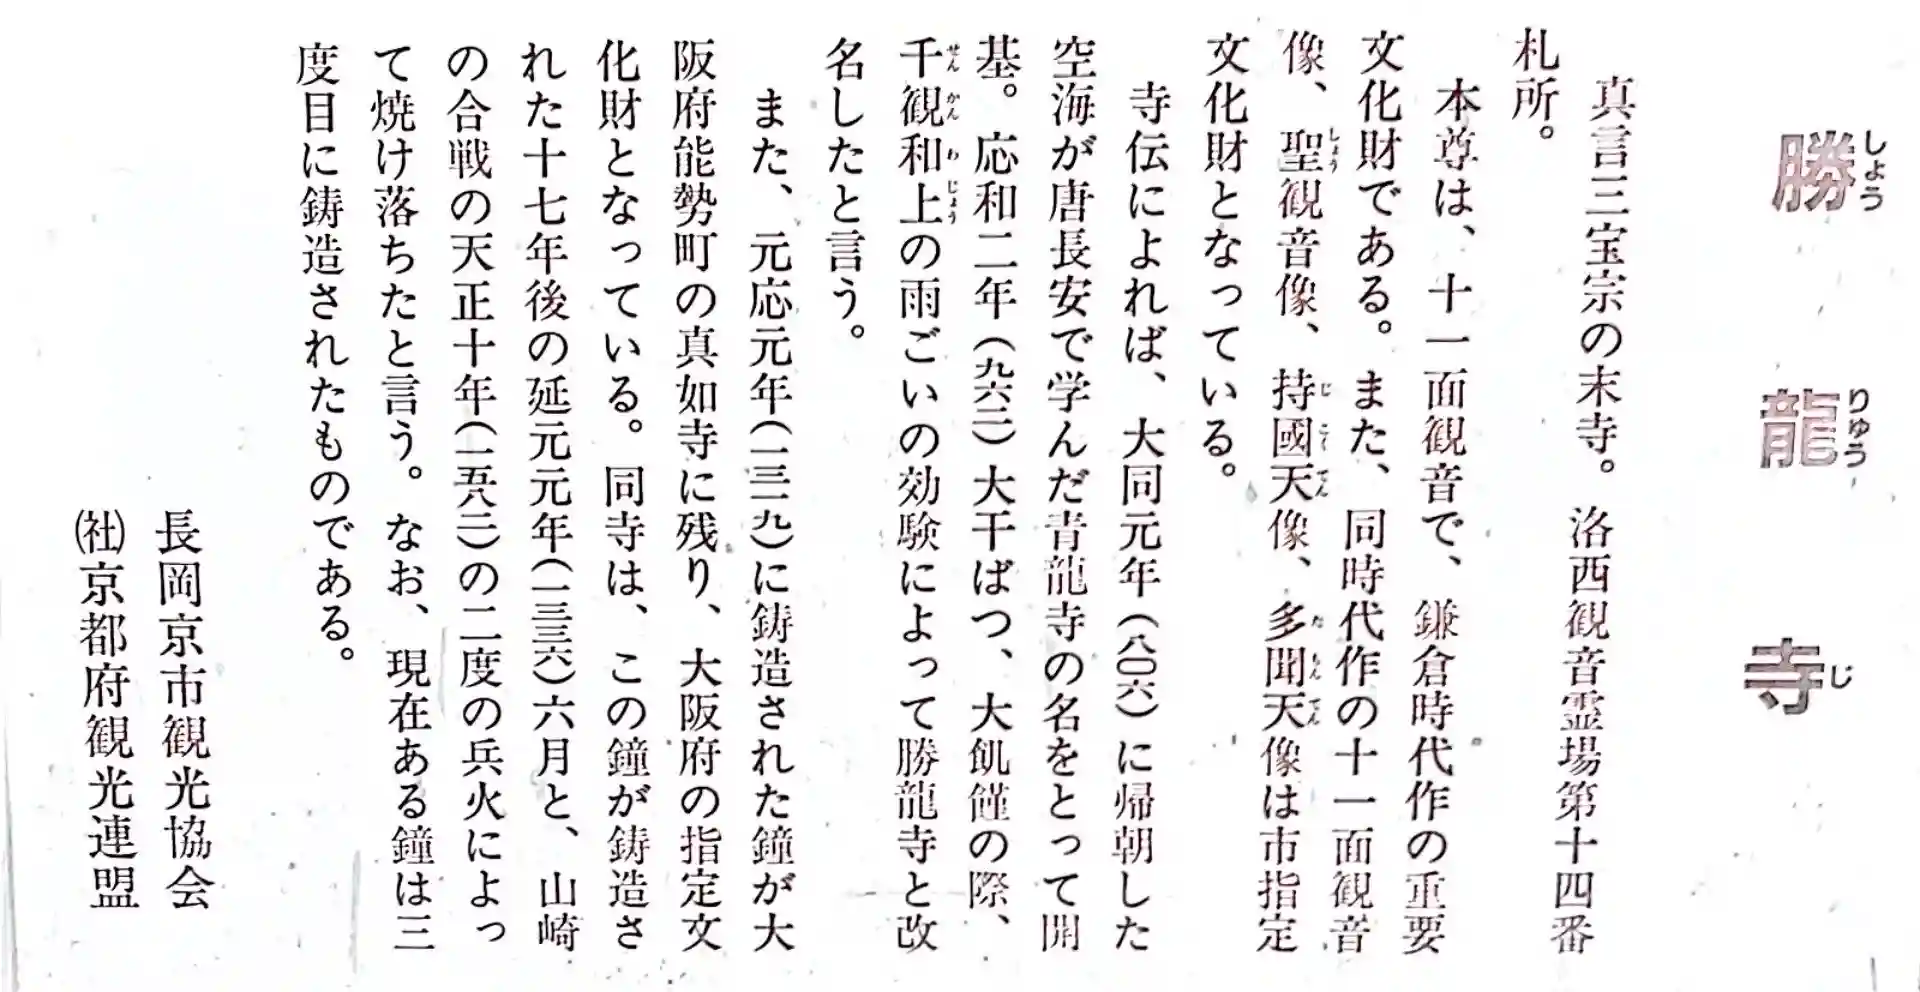 勝龍寺
しょうりゅうじ
真言三宝宗の末寺。洛西観音霊場第十四番
札所。
本尊は、十一面観音で、鎌倉時代作の重要
文化財である。また、同時代作の十一面観音
像、聖観音像、持國天像、多聞天像は市指定
しょう じこくてん たもんてん
文化財となっている。
寺伝によれば、大同元年(八〇六)に帰朝した
空海が唐長安で学んだ青龍寺の名をとって開
基。応和二年(九六二)大干ばつ、大飢饉の際、
千観和上の雨ごいの効験によって勝龍寺と改
せんかんわじょう
名したと言う。
また、元応元年(一三一九)に鋳造された鐘が大
阪府能勢町の真如寺に残り、大阪府の指定文
化財となっている。同寺は、この鐘が鋳造さ
れた十七年後の延元元年(一三三六)六月と、山崎
の合戦の天正十年(一五八二)の二度の兵火によっ
て焼け落ちたと言う。なお、現在ある鐘は三
度目に鋳造されたものである。
長岡京市観光協会
㈳京都府観光連盟